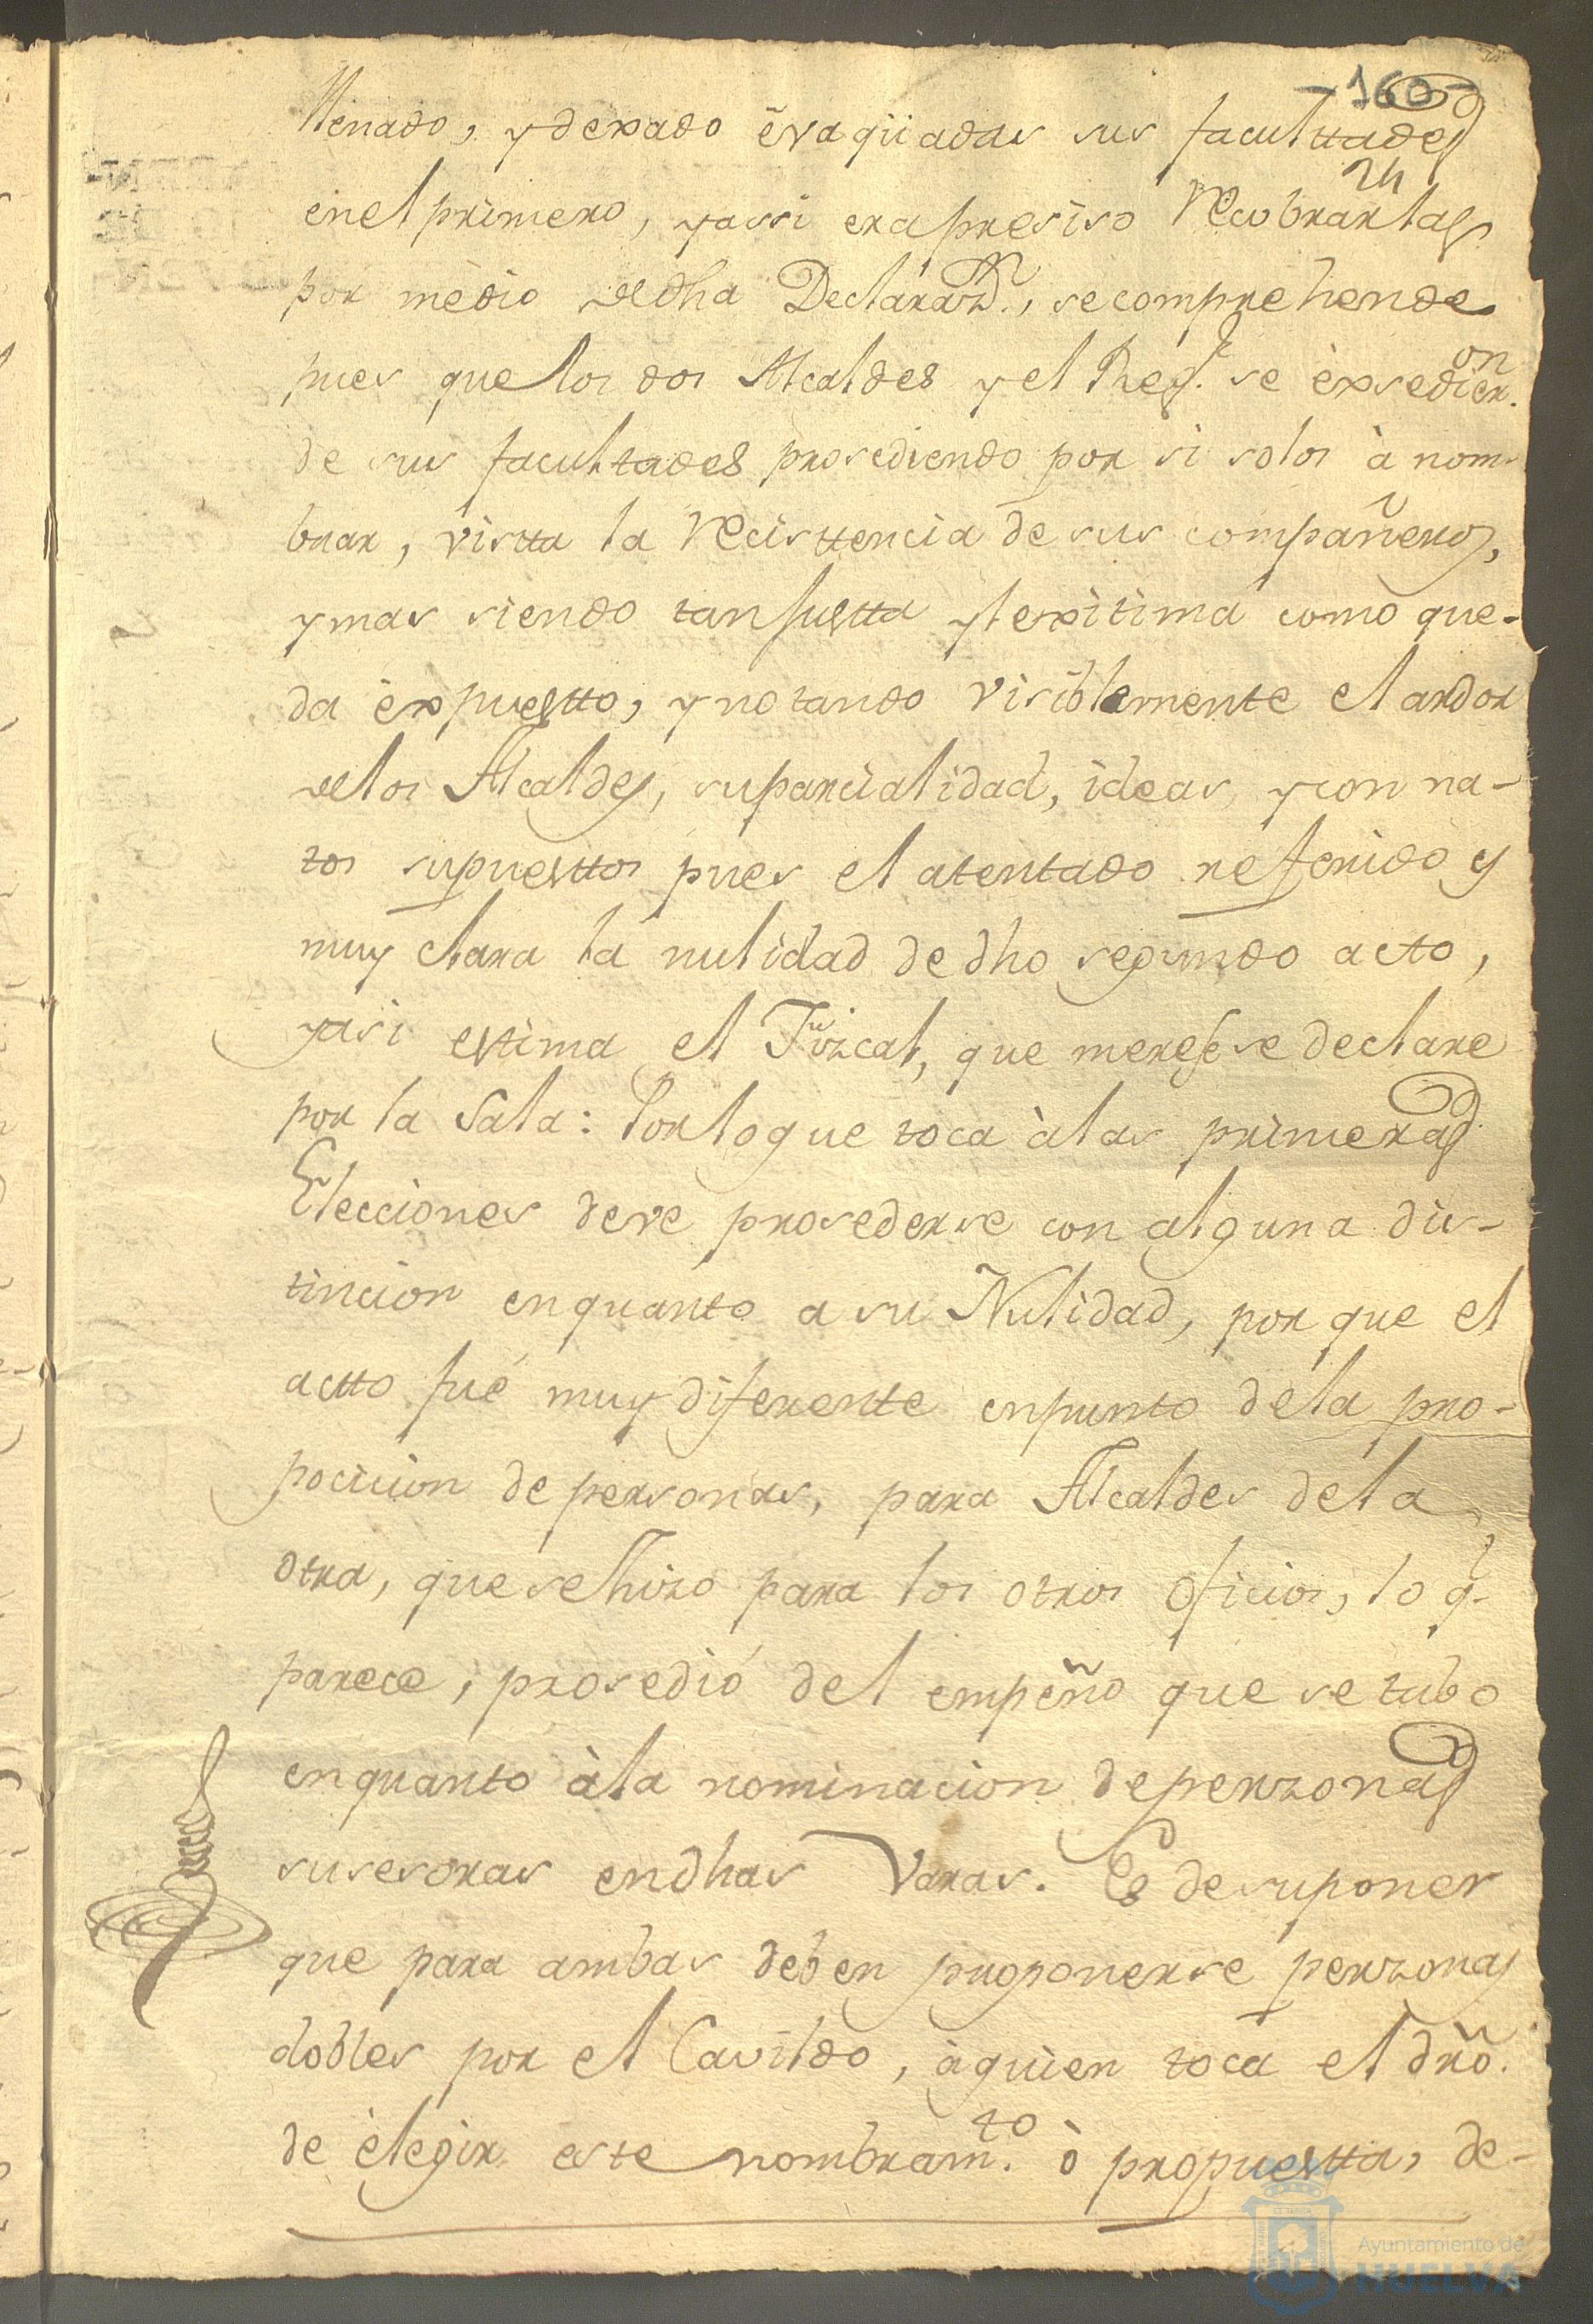 -160-
llenado, y dexado evaqüadas sus facultades
24
en el primero, y assi era presiso Recobrarlas
por medio de dha Declaraz.n, se comprehende
pues que los dos Alcaldes y el Reg.r se exsedier.on
de sus facultades prosediendo por si solos à nom-
brar, vistta la Recisttencia de sus compañeros,
y mas siendo tan justta y lexitima como que-
da expuestto, y notando visiblemente el ardor
de los Alcaldes, su parcialidad, ideas, y con na-
tos supuesttos pues el atentado referido es
muy clara la nulidad de dho segundo acto,
y asi estima el Fizcal, que merese se declare
por la Sala: Por lo que toca à las primeras
Elecciones deve prosederse con alguna dis-
tincion en quanto a su Nulidad, por que el
actto fué muy diferente en punto de la pro-
pocicion de personas, para Alcaldes de la
otra, que se hizo para los otros oficios, lo q.e
parece, prosedió del empeño que se tubo
en quanto à la nominacion de perzonas
susesoras en dhas Varas. Es de suponer
que para ambas deben proponerse perzonas
dobles por el Cavildo, à quien toca el dro.
de elegir este nombram.to ò propuestta, de-
Ayuntamiento de
HUELVA